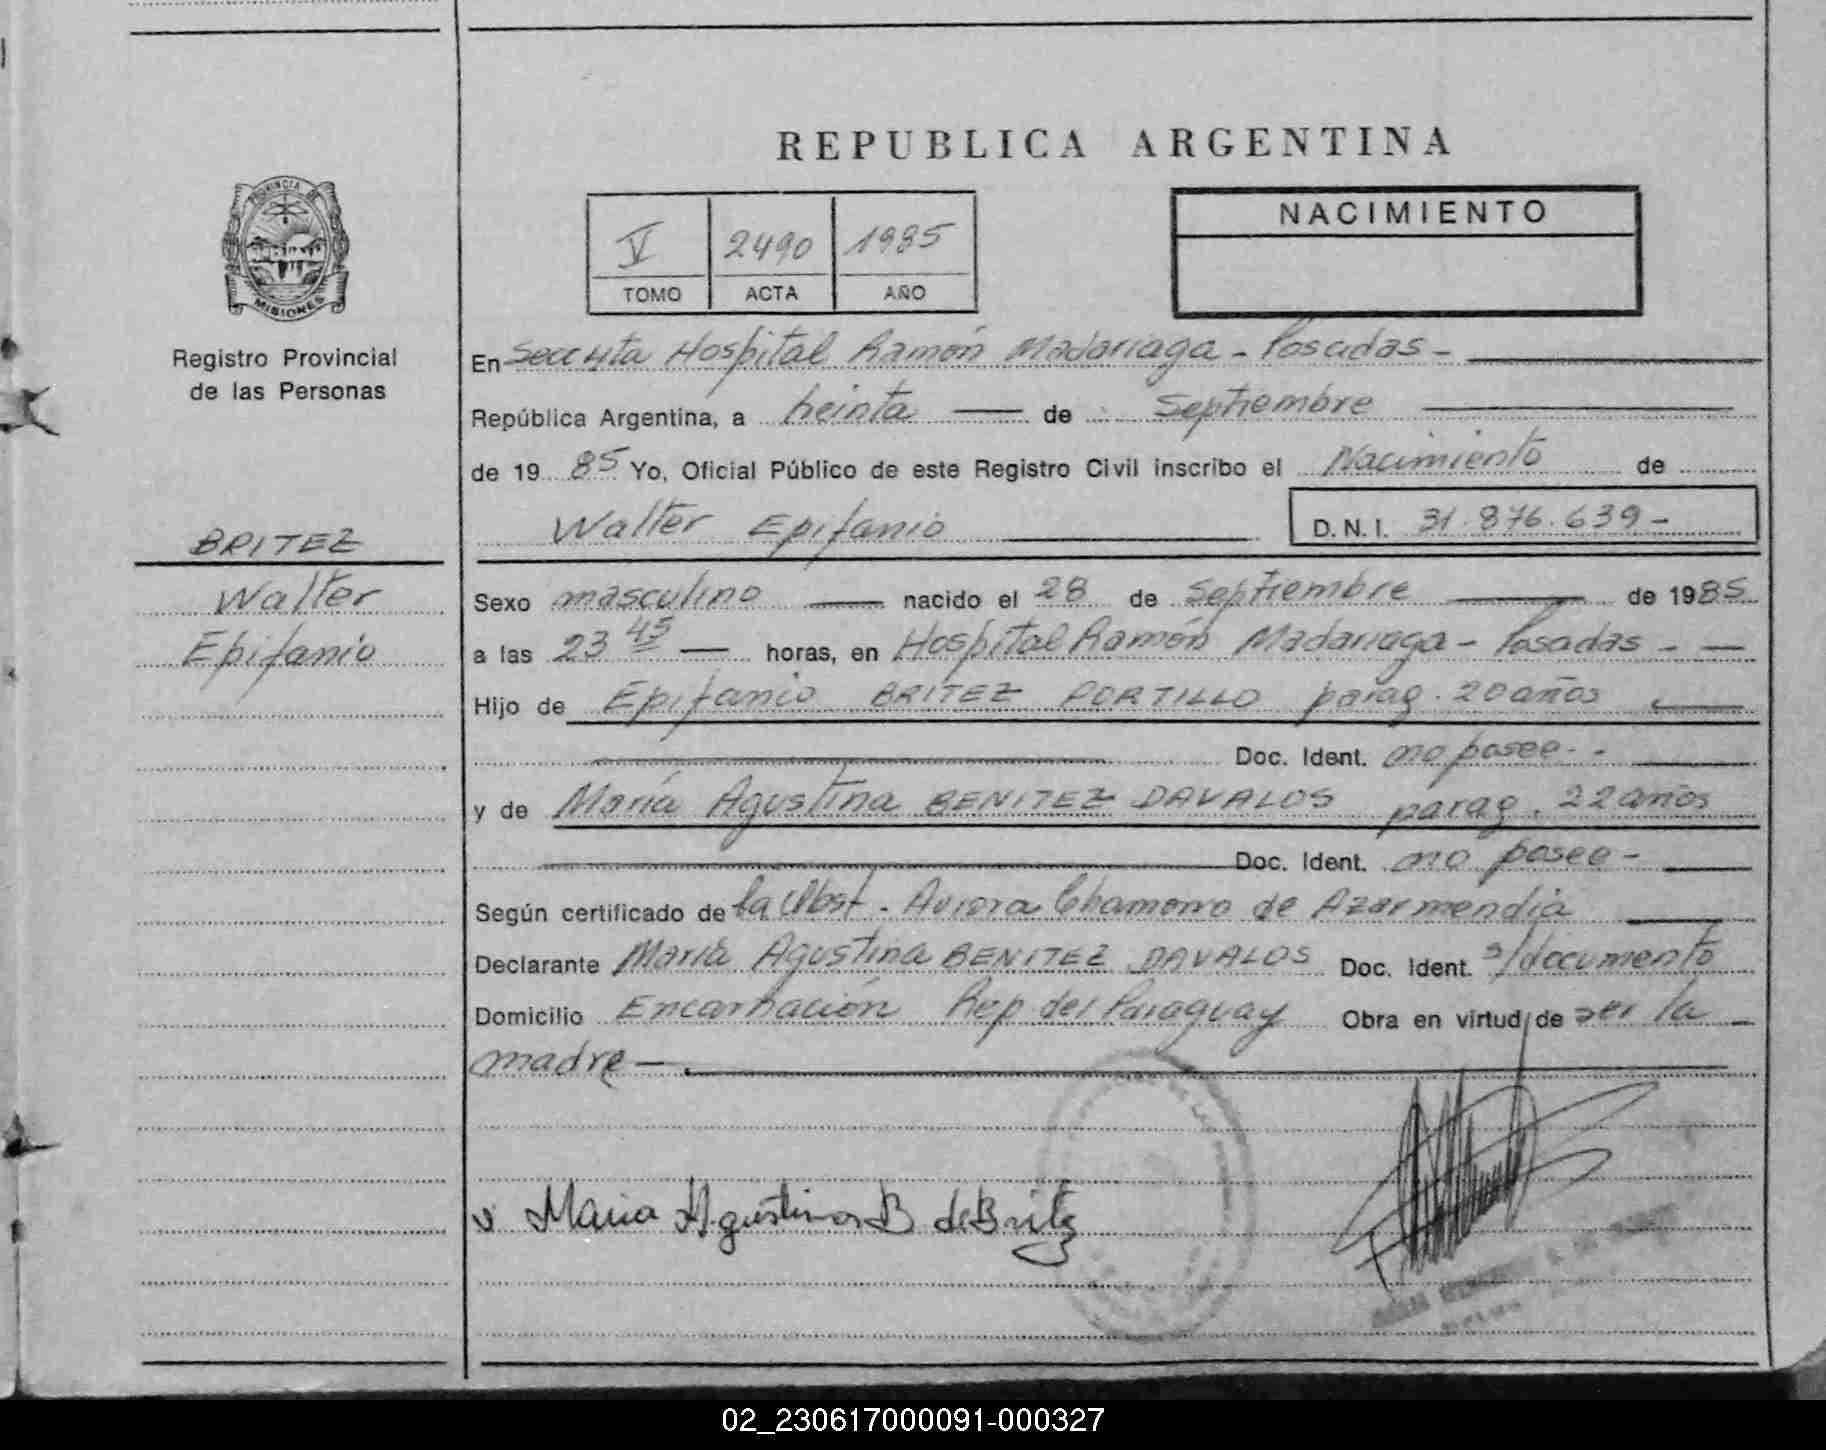 REPUBLICA ARGENTINA
PROVINCIA DE
MISIONES
Registro Provincial
de las Personas
V 2490 1985
TOMO ACTA AÑO
NACIMIENTO
En Secc 4ta Hospital Ramón Madariaga - Posadas -
República Argentina, a treinta de Septiembre
de 1985 Yo, Oficial Público de este Registro Civil inscribo el Nacimiento de
Walter Epifanio D.N.I. 31.876.639-
BRITEZ
Walter
Epifanio
Sexo masculino nacido el 28 de Septiembre de 1985
a las 23 45 horas, en Hospital Ramón Madariaga - Posadas -
Hijo de Epifanio BRITEZ PORTILLO parag. 20 años
Doc. Ident. no posee -
y de María Agustina BENITEZ DAVALOS parag. 22 años
Doc. Ident. no posee -
Según certificado de la Obst. Aurora Chamorro de Azarmendia
Declarante María Agustina BENITEZ DAVALOS Doc. Ident. s/documento
Domicilio Encarnación Rep del Paraguay Obra en virtud de ser la
madre -
Maria Agustina B de Britez
02_230617000091-000327